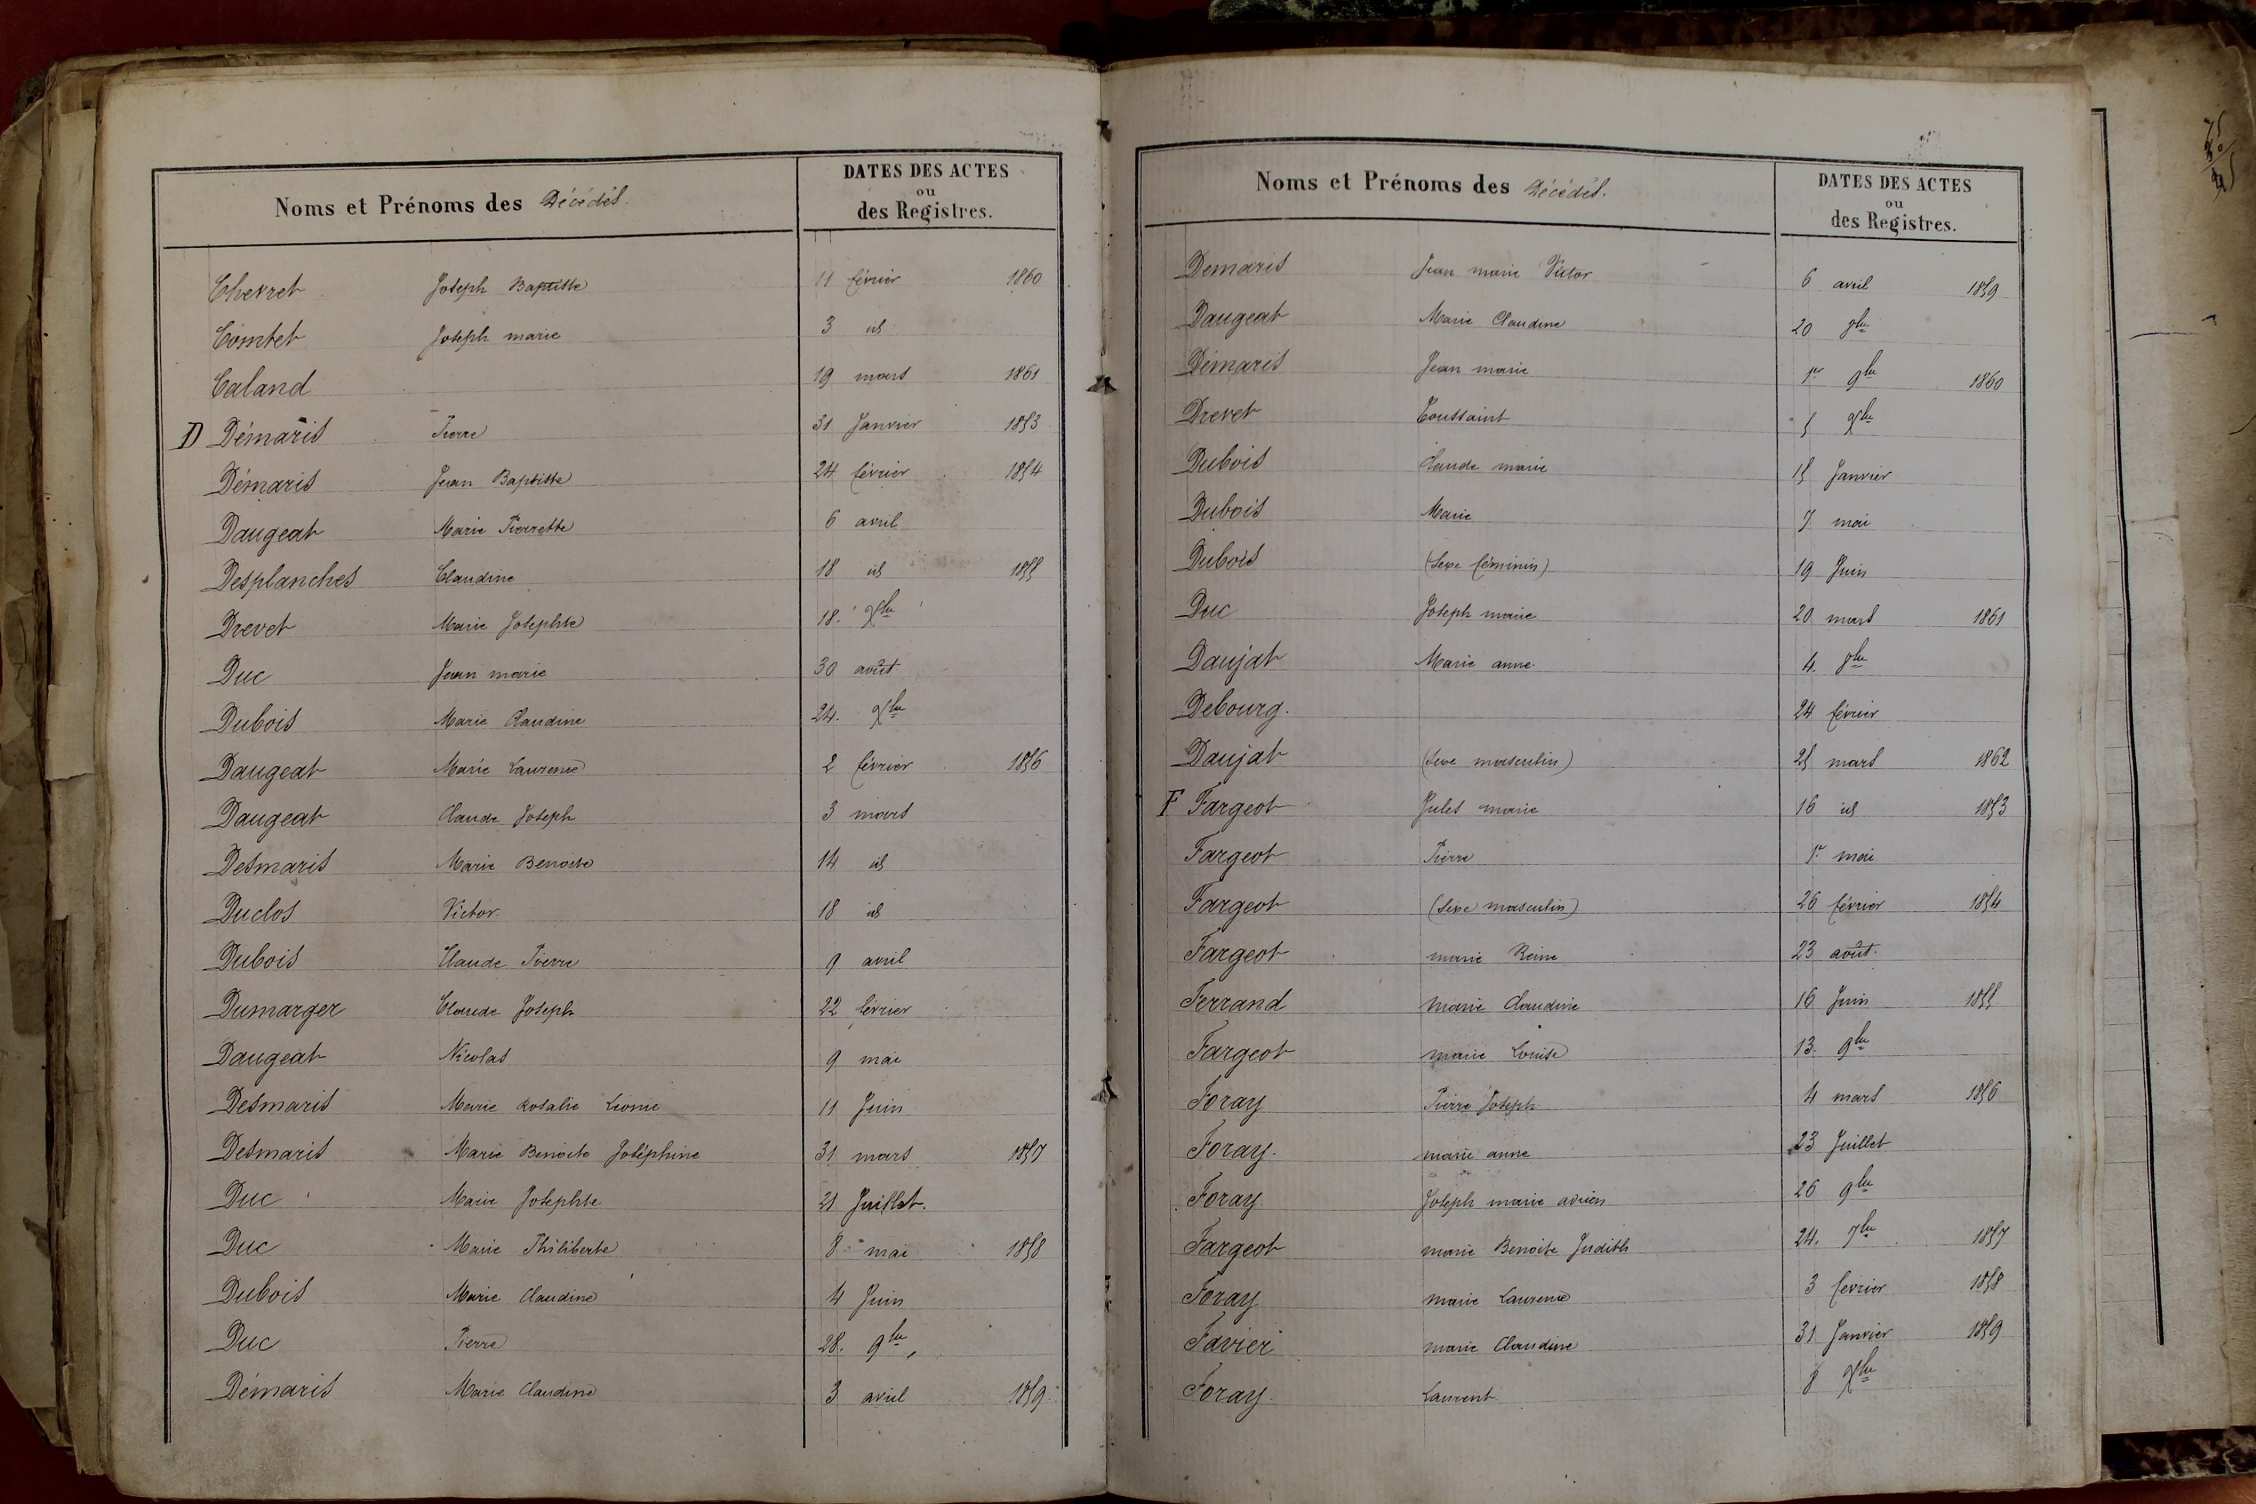 Noms et Prénoms des Décédés.
DATES DES ACTES
ou
des Registres.
Chevret Joseph Baptiste 11 février 1860
Comtet Joseph marie 3 id
Caland 19 mars 1861
D Démaris Pierre 31 Janvier 1853
Démaris Jean Baptiste 24 février 1854
Daugeat Marie Pierrette 6 avril
Desplanches Claudine 18 id 1855
Drevet Marie Josephte 18. Xbre
Duc Jean marie 30 août
Dubois Marie Claudine 24. Xbre
Daugeat Marie Laurence 2 février 1856
Daugeat Claude Joseph 3 mars
Desmaris Marie Benoite 14 id
Duclos Victor 18 id
Dubois Claude Pierre 9 avril
Dumarger Claude Joseph 22 février
Daugeat Nicolas 9 mai
Desmaris Marie Rosalie Leonie 11 Juin
Desmaris Marie Benoite Joséphine 31 mars 1857
Duc Marie Josephte 21 Juillet.
Duc Marie Philiberte 8 mai 1858
Dubois Marie Claudine 4 Juin
Duc Pierre 28. 9bre
Démaris Marie Claudine 3 avril 1859
Noms et Prénoms des Décédés.
DATES DES ACTES
ou
des Registres.
Demaris Jean marie Victor 6 avril 1859
Daugeat Marie Claudine 20 8bre
Démaris Jean marie 1er 9bre 1860
Drevet Toussaint 5 Xbre
Dubois Claude marie 15 Janvier
Dubois Marie 7 mai
Dubois (Sexe féminin) 19 Juin
Duc Joseph marie 20 mars 1861
Daujat Marie anne 4. 8bre
Debourg. 24 février
Daujat (Sexe masculin) 25 mars 1862
F Fargeot Jules marie 16 id 1853
Fargeot Pierre 1er mai
Fargeot (Sexe masculin) 26 février 1854
Fargeot marie Reine 23 août.
Ferrand marie Claudine 16 Juin 1855
Fargeot marie Louise 13. 9bre
Foray Pierre Joseph 4 mars 1856
Foray. marie anne 23 Juillet
Foray Joseph marie adrien 26 9bre
Fargeot marie Benoite Judith 24. 7bre 1857
Foray marie Laurence 3 fevrier 1858
Favier marie Claudine 31 Janvier 1859
Foray. Laurent 8 Xbre